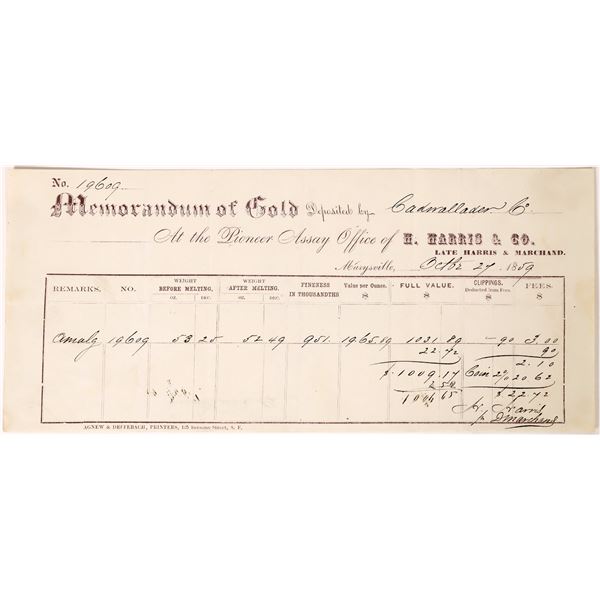 No. 19609
Memorandum of Gold Deposited by Cadwallader Co
At the Pioneer Assay Office of H. HARRIS & CO.
LATE HARRIS & MARCHAND.
Marysville, Octbr 27 1859
REMARKS. NO. WEIGHT BEFORE MELTING. WEIGHT AFTER MELTING. FINENESS IN THOUSANDTHS Value per Ounce. FULL VALUE. CLIPPINGS. Deducted from Fees. FEES.
OZ. DEC. OZ. DEC. $ $ $ $
Amalg 19609 53 25 52 49 951. 19.65.89 1031.89 - 90 3.00
22.72 90
2.10
$ 1009.17 Coin 2% 20 62
2 5 $ 22.72
1006 65 H. Harris
p D Marchand
AGNEW & DEFFEBACH, PRINTERS, 125 Sansome Street, S. F.